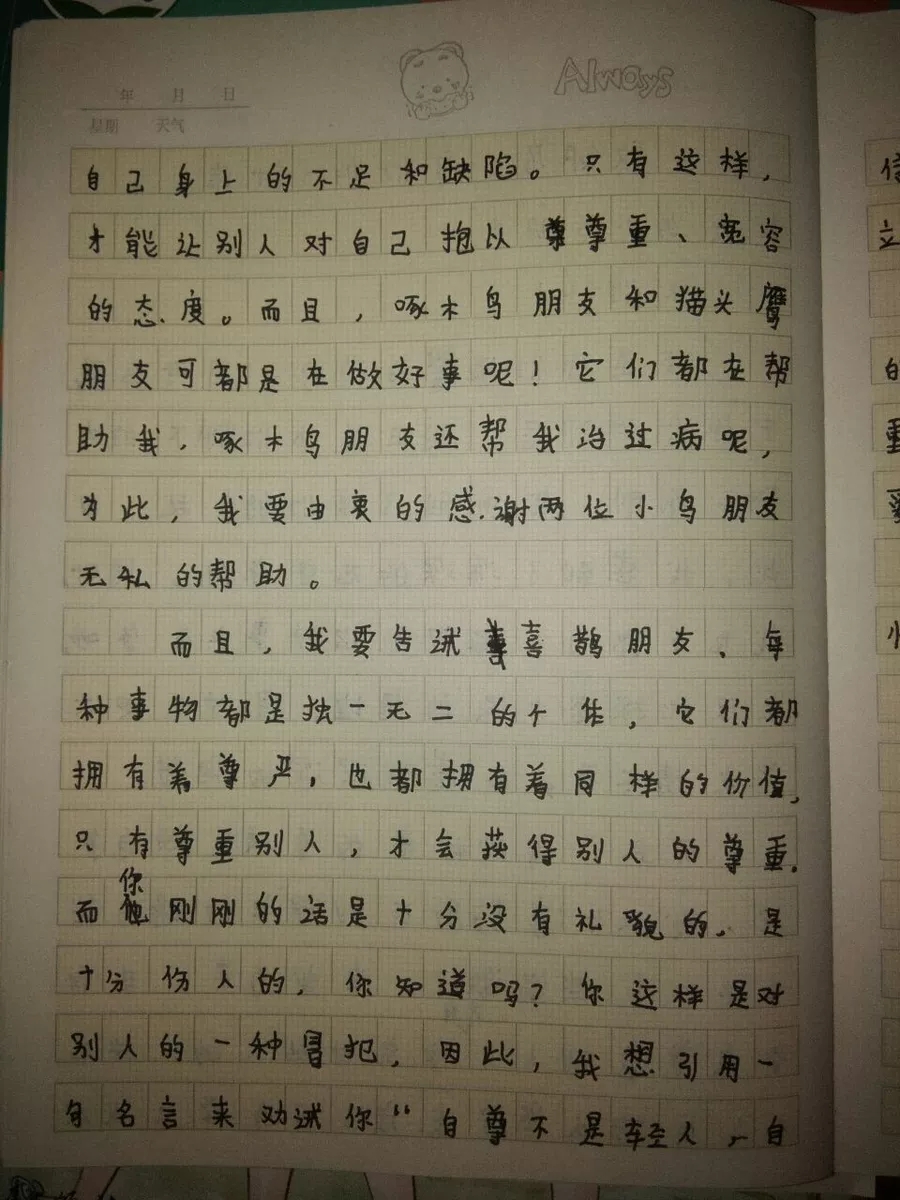 Always
年 月 日
星期 天气
自己身上的不足和缺陷。只有这样,
才能让别人对自己抱以尊尊重、宽容
的态度。而且,啄木鸟朋友和猫头鹰
朋友可都是在做好事呢!它们都在帮
助我,啄木鸟朋友还帮我治过病呢,
为此,我要由衷的感谢两位小鸟朋友
无私的帮助。
而且,我要告诫喜鹊朋友、每
种事物都是独一无二的个体,它们都
拥有着尊严,也都拥有着同样的价值,
只有尊重别人,才会获得别人的尊重.
而你刚刚的话是十分没有礼貌的,是
十分伤人的,你知道吗?你这样是对
别人的一种冒犯,因此,我想引用一
句名言来劝诫你“自尊不是轻人,自